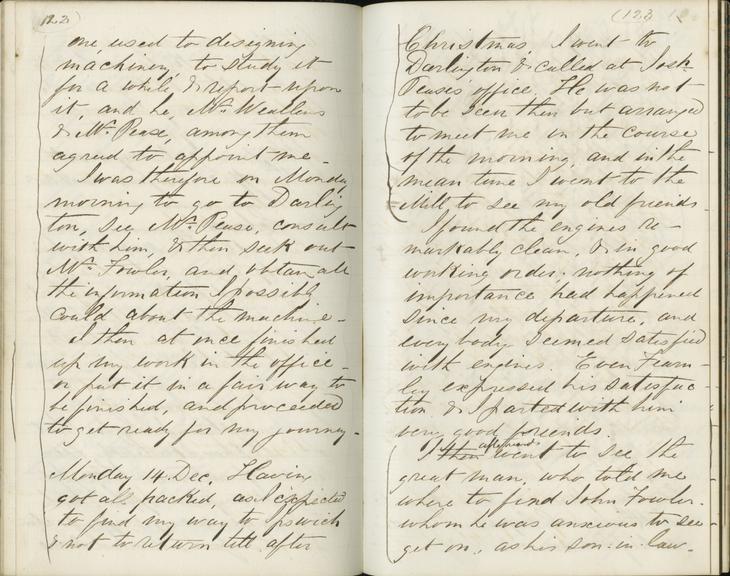 (122)
one, used to designing
machinery to study it
for a while, & report upon
it, and he, Mr. Weallens
& Mr. Pease, among them
agreed to appoint me -
I was therefore on Monday
morning to go to Darling
ton, see Mr. Pease, consult
with him, & then seek out
Mr. Fowler, and obtain all
the information I possibly
could about the machine -
I then at once finished
up my work in the office -
or put it in a fair way to
be finished, and proceeded
to get ready for my journey -
Monday 14 Dec. Having
got all packed, as I expected
to find my way to Ipswich
& not to return till after
(123)
Christmas, I went to
Darlington & called at Josh.
Peases office. He was not
to be seen then but arranged
to meet me in the course
of the morning, and in the
mean time I went to the
Mill to see my old friends
I found the engines re-
markably clean, & in good
working order; nothing of
importance had happened
since my departure, and
every body seemed satisfied
with engines. Even Fearn-
ley expressed his satisfac-
tion, & I parted with him
very good friends.
I then afterwards went to see the
great man, who told me
where to find John Fowler.
whom he was anxious to see
get on, as his son-in-law.